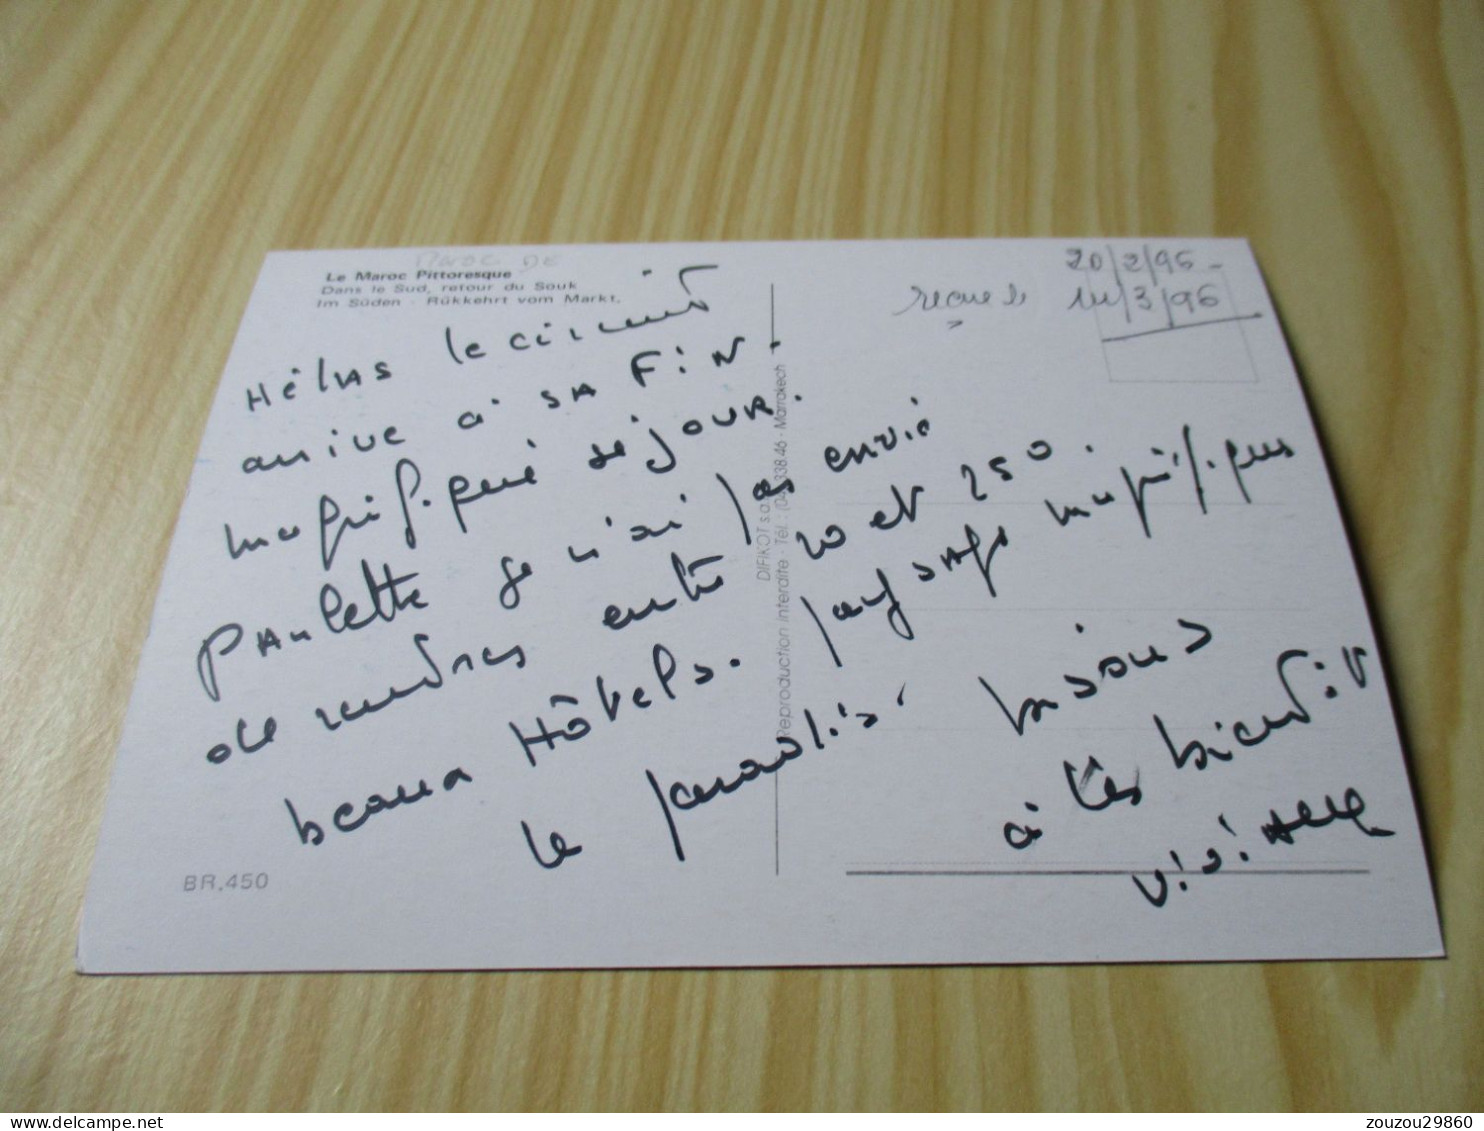 MAROC DE
Le Maroc Pittoresque
Dans le Sud, retour du Souk
Im Süden - Rükkehrt vom Markt.
20/2/96
reçue le 14/3/96
Hélas le circuit
arrive à sa FiN.
magnifique séjour.
Paulette je n'ai pas envie
de rendres entre 20 et 250.
beaux Hôtels. paysage magnifiques
le paradis' bisous
à tès bientôt
DIFIKOT s.a
Reproduction interdite - Tél.: (04) 338.46 - Marrakech
BR.450
zouzou29860